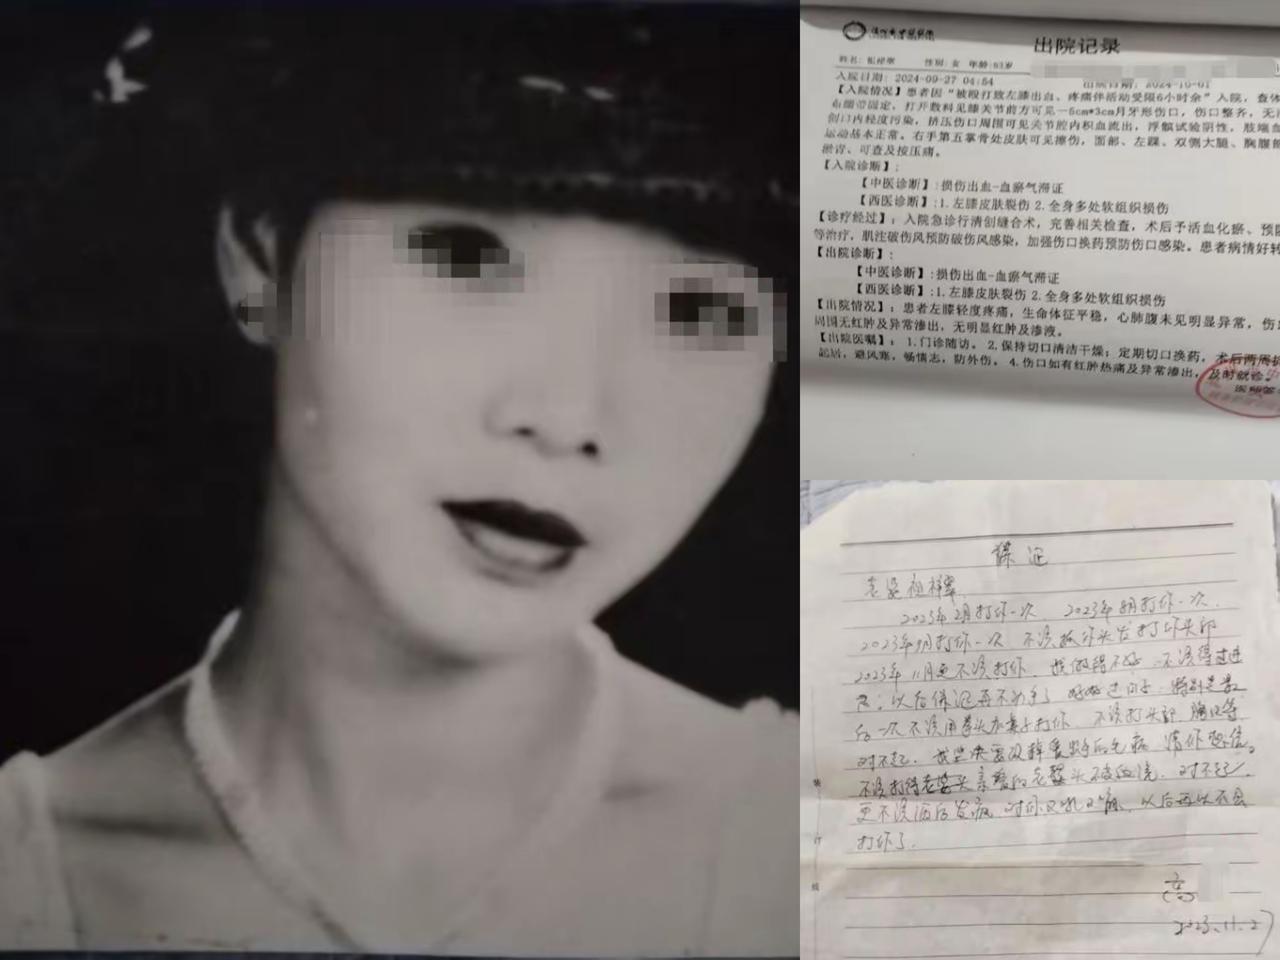 出院记录
姓名: 性别: 女 年龄: 53岁
入院日期: 2024-09-27 04:54 出院日期: 2024-10-01
【入院情况】患者因“被殴打致左膝出血、疼痛伴活动受限6小时余”入院, 查体
布绷带固定, 打开敷料见膝关节前方可见一5cm*3cm月牙形伤口, 伤口整齐, 无活
创口内轻度污染, 挤压伤口周围可见关节腔内积血流出, 浮髌试验阴性, 肢端血
运动基本正常。右手第五掌骨处皮肤可见擦伤, 面部、左踝、双侧大腿、胸腹部
淤青、可查及按压痛。
【入院诊断】:
【中医诊断】: 损伤出血-血瘀气滞证
【西医诊断】: 1. 左膝皮肤裂伤 2. 全身多处软组织损伤
【诊疗经过】: 入院急诊行清创缝合术, 完善相关检查, 术后予活血化瘀、预防
等治疗, 肌注破伤风预防破伤风感染, 加强伤口换药预防伤口感染。患者病情好转
【出院诊断】:
【中医诊断】: 损伤出血-血瘀气滞证
【西医诊断】: 1. 左膝皮肤裂伤 2. 全身多处软组织损伤
【出院情况】: 患者左膝轻度疼痛, 生命体征平稳, 心肺腹未见明显异常, 伤口
周围无红肿及异常渗出, 无明显红肿及渗液。
【出院医嘱】: 1. 门诊随访。 2. 保持切口清洁干燥; 定期切口换药, 术后两周拆
起居, 避风寒, 畅情志, 防外伤。 4. 伤口如有红肿热痛及异常渗出, 及时就诊。
医师签
保证
老婆祖祥翠
2023年2月打你一次 2023年8月打你一次.
2023年9月打你一次 不该抓你头发打你头部
2023年11月更不该打你. 我做得不好 不该得过进
以后保证再不动手了 好好过日子. 特别是最
后一次不该用拳头 打你 不该打头部 胸口等
对不起. 我坚决要改掉 的毛病 请你 信。
不该打得老婆头 亲爱的老婆头 对不起
更不该酒后发疯 对你又吼又 以后再也不会
打你了.
2023.11.27
装
订
线